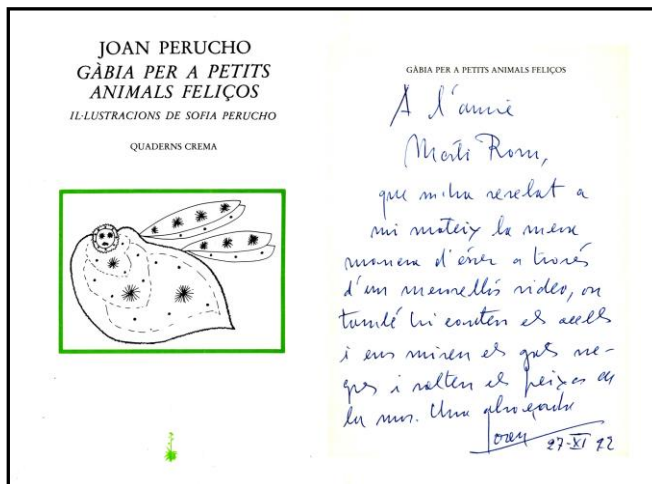 JOAN PERUCHO
GÀBIA PER A PETITS
ANIMALS FELIÇOS
IL·LUSTRACIONS DE SOFIA PERUCHO
QUADERNS CREMA
GÀBIA PER A PETITS ANIMALS FELIÇOS
A l'amic
Martí Rom,
que m'ha revelat a
mi mateix la meva
manera d'ésser a través
d'un meravellós video, on
també hi canten els ocells
i ens miren els gats ne-
gres i salten els peixos de
la mar. Una abraçada
Joan
27-XI 92